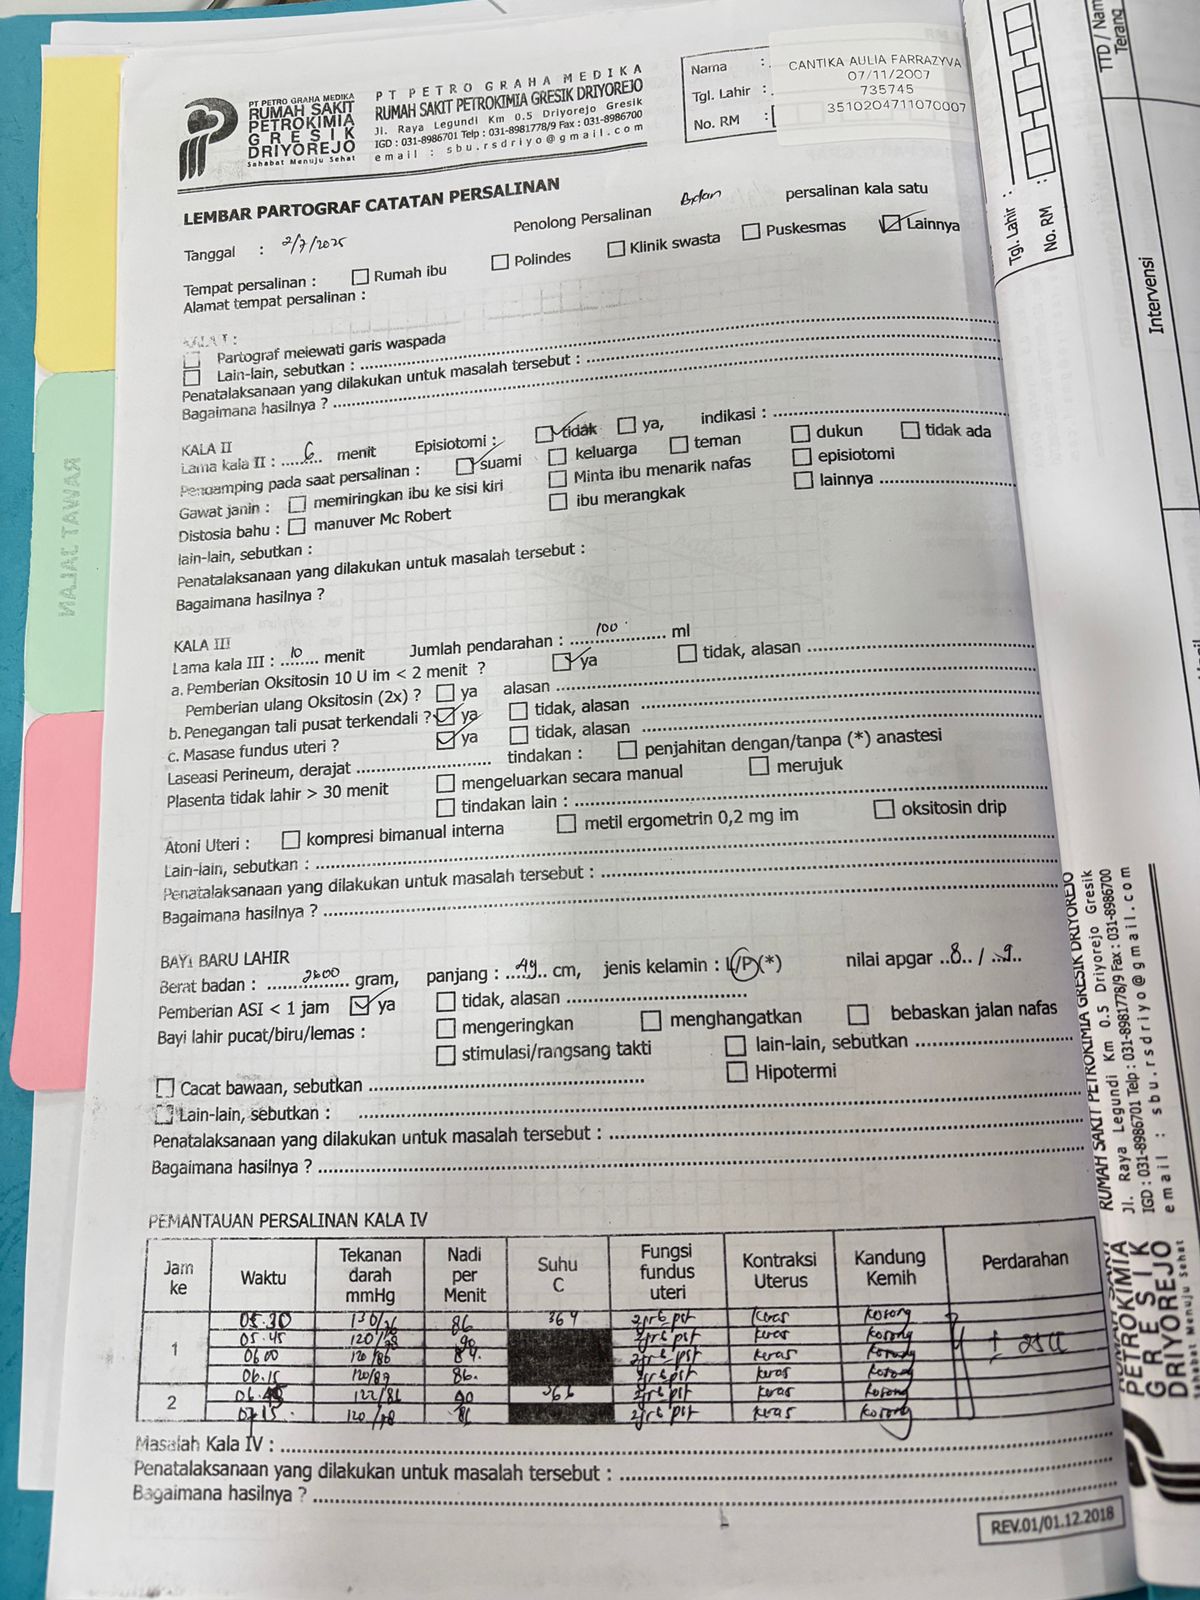 PT PETRO GRAHA MEDIKA
RUMAH SAKIT
PETROKIMIA
GRESIK
DRIYOREJO
Sahabat Menuju Sehat
PT PETRO GRAHA MEDIKA
RUMAH SAKIT PETROKIMIA GRESIK DRIYOREJO
Jl. Raya Legundi Km 0.5 Driyorejo Gresik
IGD : 031-8986701 Telp : 031-8981778/9 Fax : 031-8986700
email : sbu.rsdriyo@gmail.com
Nama :
Tgl. Lahir :
No. RM :
CANTIKA AULIA FARRAZYVA
07/11/2007
735745
3510204711070007
LEMBAR PARTOGRAF CATATAN PERSALINAN
Tanggal : 2/7/2025 Penolong Persalinan Bidan persalinan kala satu
Tempat persalinan : Rumah ibu Polindes Klinik swasta Puskesmas Lainnya
Alamat tempat persalinan :
KALA I :
Partograf melewati garis waspada
Lain-lain, sebutkan :
Penatalaksanaan yang dilakukan untuk masalah tersebut :
Bagaimana hasilnya ?
KALA II
Lama kala II : 6 menit Episiotomi : tidak ya, indikasi :
Pendamping pada saat persalinan : suami keluarga teman dukun tidak ada
Gawat janin : memiringkan ibu ke sisi kiri Minta ibu menarik nafas episiotomi
Distosia bahu : manuver Mc Robert ibu merangkak lainnya
lain-lain, sebutkan :
Penatalaksanaan yang dilakukan untuk masalah tersebut :
Bagaimana hasilnya ?
KALA III
Lama kala III : 10 menit Jumlah pendarahan : 100 ml
a. Pemberian Oksitosin 10 U im < 2 menit ? ya tidak, alasan
Pemberian ulang Oksitosin (2x) ? ya alasan
b. Penegangan tali pusat terkendali ? ya tidak, alasan
c. Masase fundus uteri ? ya tidak, alasan
Laseasi Perineum, derajat tindakan : penjahitan dengan/tanpa (*) anastesi
Plasenta tidak lahir > 30 menit mengeluarkan secara manual merujuk
tindakan lain :
Atoni Uteri : kompresi bimanual interna metil ergometrin 0,2 mg im oksitosin drip
Lain-lain, sebutkan :
Penatalaksanaan yang dilakukan untuk masalah tersebut :
Bagaimana hasilnya ?
BAYI BARU LAHIR
Berat badan : 2800 gram, panjang : 49 cm, jenis kelamin : L/P(*) nilai apgar 8 / 9
Pemberian ASI < 1 jam ya tidak, alasan
Bayi lahir pucat/biru/lemas : mengeringkan menghangatkan bebaskan jalan nafas
stimulasi/rangsang takti lain-lain, sebutkan
Cacat bawaan, sebutkan Hipotermi
Lain-lain, sebutkan :
Penatalaksanaan yang dilakukan untuk masalah tersebut :
Bagaimana hasilnya ?
PEMANTAUAN PERSALINAN KALA IV
Jam ke Waktu Tekanan darah mmHg Nadi per Menit Suhu C Fungsi fundus uteri Kontraksi Uterus Kandung Kemih Perdarahan
1 05.30 130/76 86 364 2jrb pst keras kosong
05.45 120/78 90 2jrb pst keras kosong ± 25cc
06.00 120/86 84 2jrb pst keras kosong
06.15 120/89 86 2jrb pst keras kosong
2 06.45 122/86 90 366 2jrb pst keras kosong
07.15 120/78 86 2jrb pst keras kosong
Masalah Kala IV :
Penatalaksanaan yang dilakukan untuk masalah tersebut :
Bagaimana hasilnya ?
REV.01/01.12.2018
RAWAT JALAN
Tgl. Lahir :
No. RM :
TTD / Nama
Terang
Intervensi
RUMAH SAKIT PETROKIMIA GRESIK DRIYOREJO
Jl. Raya Legundi Km 0.5 Driyorejo Gresik
IGD : 031-8986701 Telp : 031-8981778/9 Fax : 031-8986700
email : sbu.rsdriyo@gmail.com
PETROKIMIA
GRESIK
DRIYOREJO
Sahabat Menuju Sehat